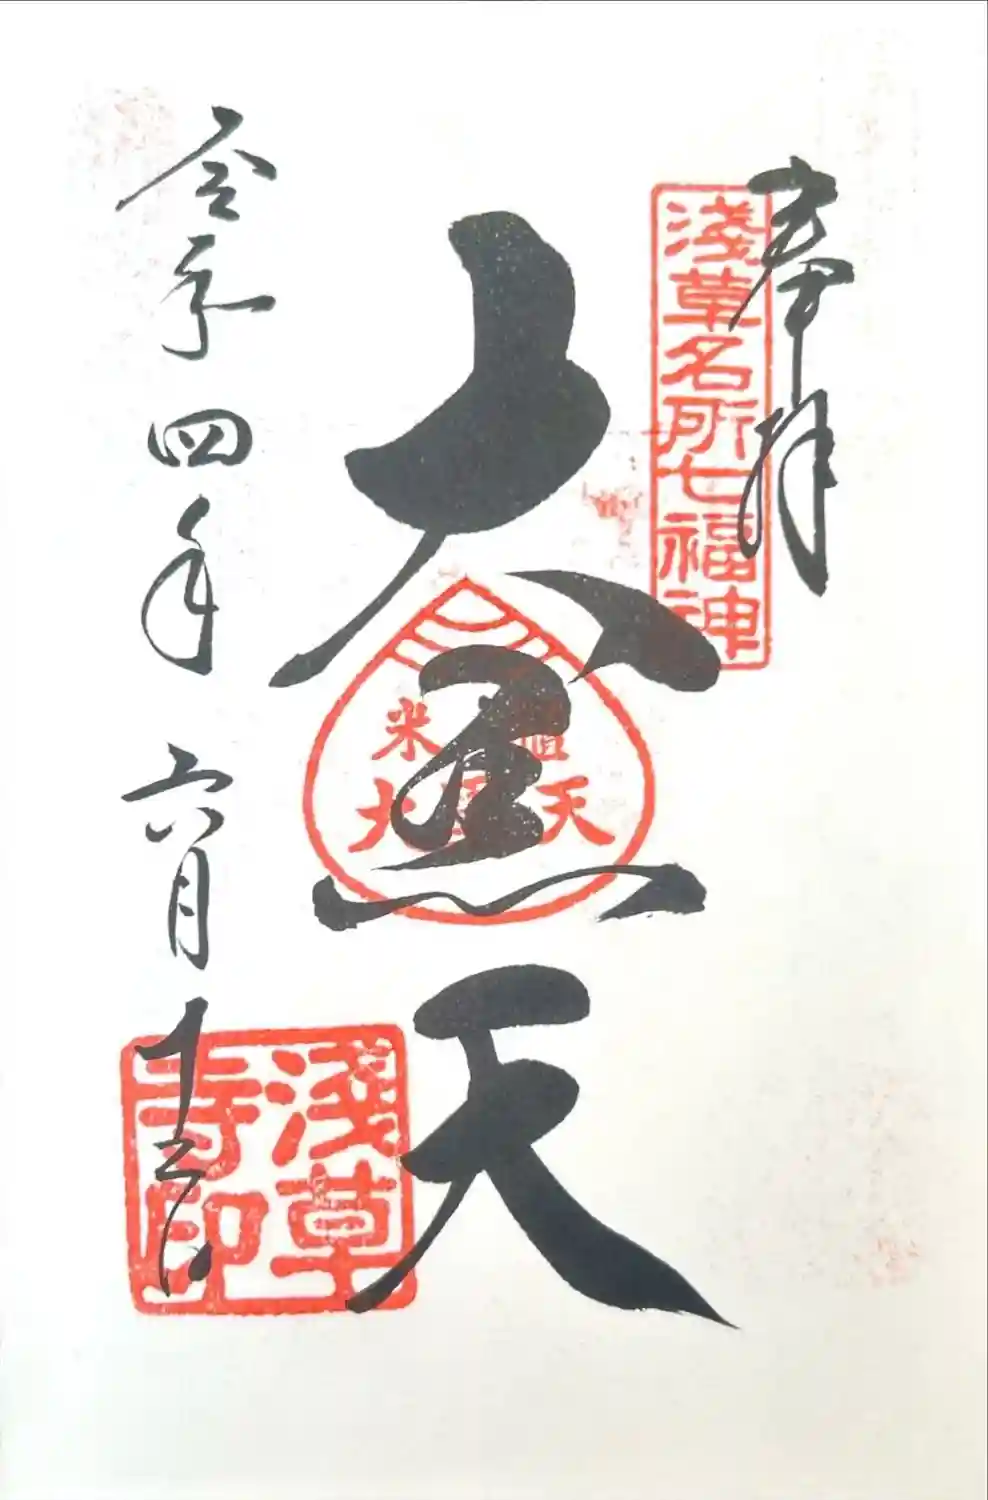 奉拝
淺草名所七福神
大黒天
米櫃
大黒天
令和四年 六月十三日
淺草
寺印